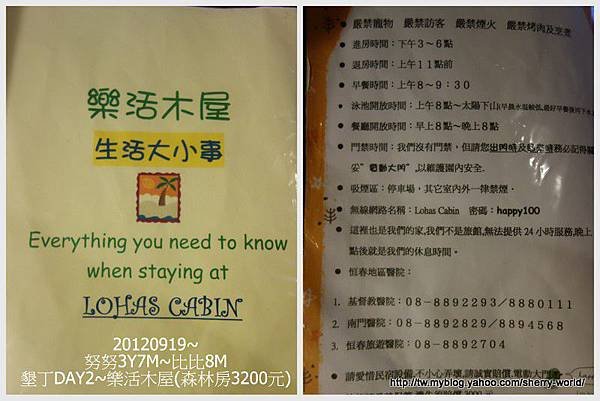 樂活木屋
生活大小事
Everything you need to know
when staying at
LOHAS CABIN
20120919~
努努3Y7M~比比8M
墾丁DAY2~樂活木屋(森林房3200元)
嚴禁寵物 嚴禁訪客 嚴禁煙火 嚴禁烤肉及烹煮
進房時間：下午3～6點
退房時間：上午11點前
早餐時間：上午8～9：30
泳池開放時間：上午8點~太陽下山(早晨水溫較低,最好早餐後再下水
餐廳開放時間：早上8點~晚上8點
門禁時間：我們沒有門禁，但請您出門時及晚歸時務必記得關
妥"電動大門",以維護園內安全.
吸煙區：停車場，其它室內外一律禁煙．
無線網路名稱：Lohas Cabin 密碼：happy100
這裡也是我們的家,我們不是旅館,無法提供24小時服務,晚上
點後就是我們的休息時間．
恒春地區醫院：
1. 基督教醫院：08-8892293/8880111
2. 南門醫院：08-8892829/8894568
3. 恒春旅遊醫院：08-8892704
請愛惜民宿設備,不小心弄壞,請誠實賠償,電動大門
http://tw.myblog.yahoo.com/sherry-world/